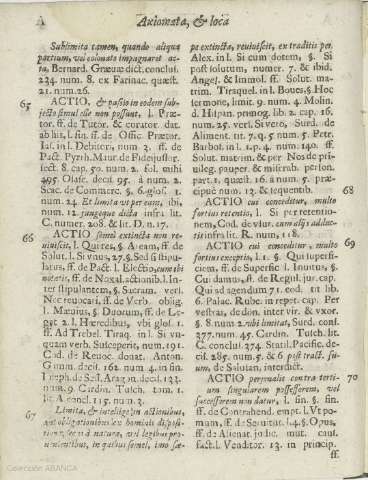 A Axiomata, & loca
Sublimita tamen, quando aliqua
partium, vel colonata impugnaret acta,
Bernard. Græuæ dict. conclus.
234. num. 8. ex Farinac. quæst.
21. num. 26.
65 ACTIO, & passio in eodem subjecto
simul esse non possunt, l. Prætor.
ff. de Tutor. & curator. dat.
ab his, l. si q. ff. de Offic. Prætor.
Jas. in l. Debitori, num. 3. ff. de
Pact. Pyrrh. Maur. de Fideiussor.
sect. 8. cap. 50. num. 2. fol. mihi
495. Olasc. decis. 95. à num. 2.
Scac. de Commerc. §. 6. glos. 1.
num. 24. Et limita vt per eam, ibi,
num. 12. iungeque dicta infra lit.
C. numer. 208. & lit. D. n. 17.
66 ACTIO semel extincta non reuiuiscit,
l. Quires, §. Aream, ff. de
Solut. l. Si vnus, 27. §. Sed si stipulatus,
ff. de Pact. l. Electio, cum ibi
notatis, ff. de Noxal. actionib. l. Inter
stipulantem, §. Sacram. verl.
Nec reuocari, ff. de Verb. oblig.
l. Mæuius, §. Duorum, ff. de Leget.
2. l. Hæredibus, vbi glos. 1. ff.
Ad Trebel. Tiraq. in l. Si vnquam
verb. Susceperit, num. 191.
Cod. de Reuoc. donat. Anton.
Gamm. decis. 162. num. 4. in fin.
Ioseph. de Self. Arag. in decis. 133.
num. 9. Cardin. Tusch. tom. 1.
lit. A. concl. 115. num. 3.
67 Limita, & intellige in actionibus,
aut obligationibus ex hominis dispositione,
secus à natura, vel legibus prouenientibus,
in quibus semel, imo sæpe
extincta, reuiuiscit, ex traditis per
Alex. in l. Si cum dotem, §. Si
post solutum, numer. 7. & ibid.
Angel. & Immol. ff. Solut. matrim.
Tiraquel. in l. Boues, §. Hoc
sermone, limit. 9. num. 4. Molin.
d. Hispan. primog. lib. 2. cap. 16.
num. 25. vers. Si vero, Surd. de
Aliment. tit. 7. q. 5. num. 5. Petr.
Barbos. in l. 1. p. 4. num. 140. ff.
Solut. matrim. & per Nos de priuileg.
pauper. & miserab. person.
part. 1. quæst. 16. à num. 5. præcipuè
num. 13. & sequentib.
68 ACTIO cui conceditur, multo
fortius retentio, l. Si per retentionem,
Cod. de vsur. cum alijs adductis
infra lit. R. num. 118.
69 ACTIO cui conceditur, multo
fortius exceptio, l. 1. §. Qui superficiem,
ff. de Superfic. l. Inuitus, §.
Cui damus, ff. de Regul. jur. cap.
Qui ad agendum 71. eod. tit. lib.
6. Palac. Rube. in repet. cap. Per
vestras, de donation. inter vir. & vxor.
§. 8. num. 2. vbi limitat, Surd. conf.
377. num. 45. Cardin. Tusch. lit.
C. concl. 274. Statil. Pacific. decis.
285. num. 5. & 6. post tract. suum,
de Saluian. interdict.
70 ACTIO perpetualis contra tertium
singularem possessorem, vel
successorem non datur, l. fin. §. fin.
ff. de Contrahend. empt. l. Vt pomum,
ff. de Seruitut. l. 4. §. Opus,
ff. de Alienat. judic. mut. caus.
fact. l. Venditor. 13. in princip.
ff.
Colección ABANCA